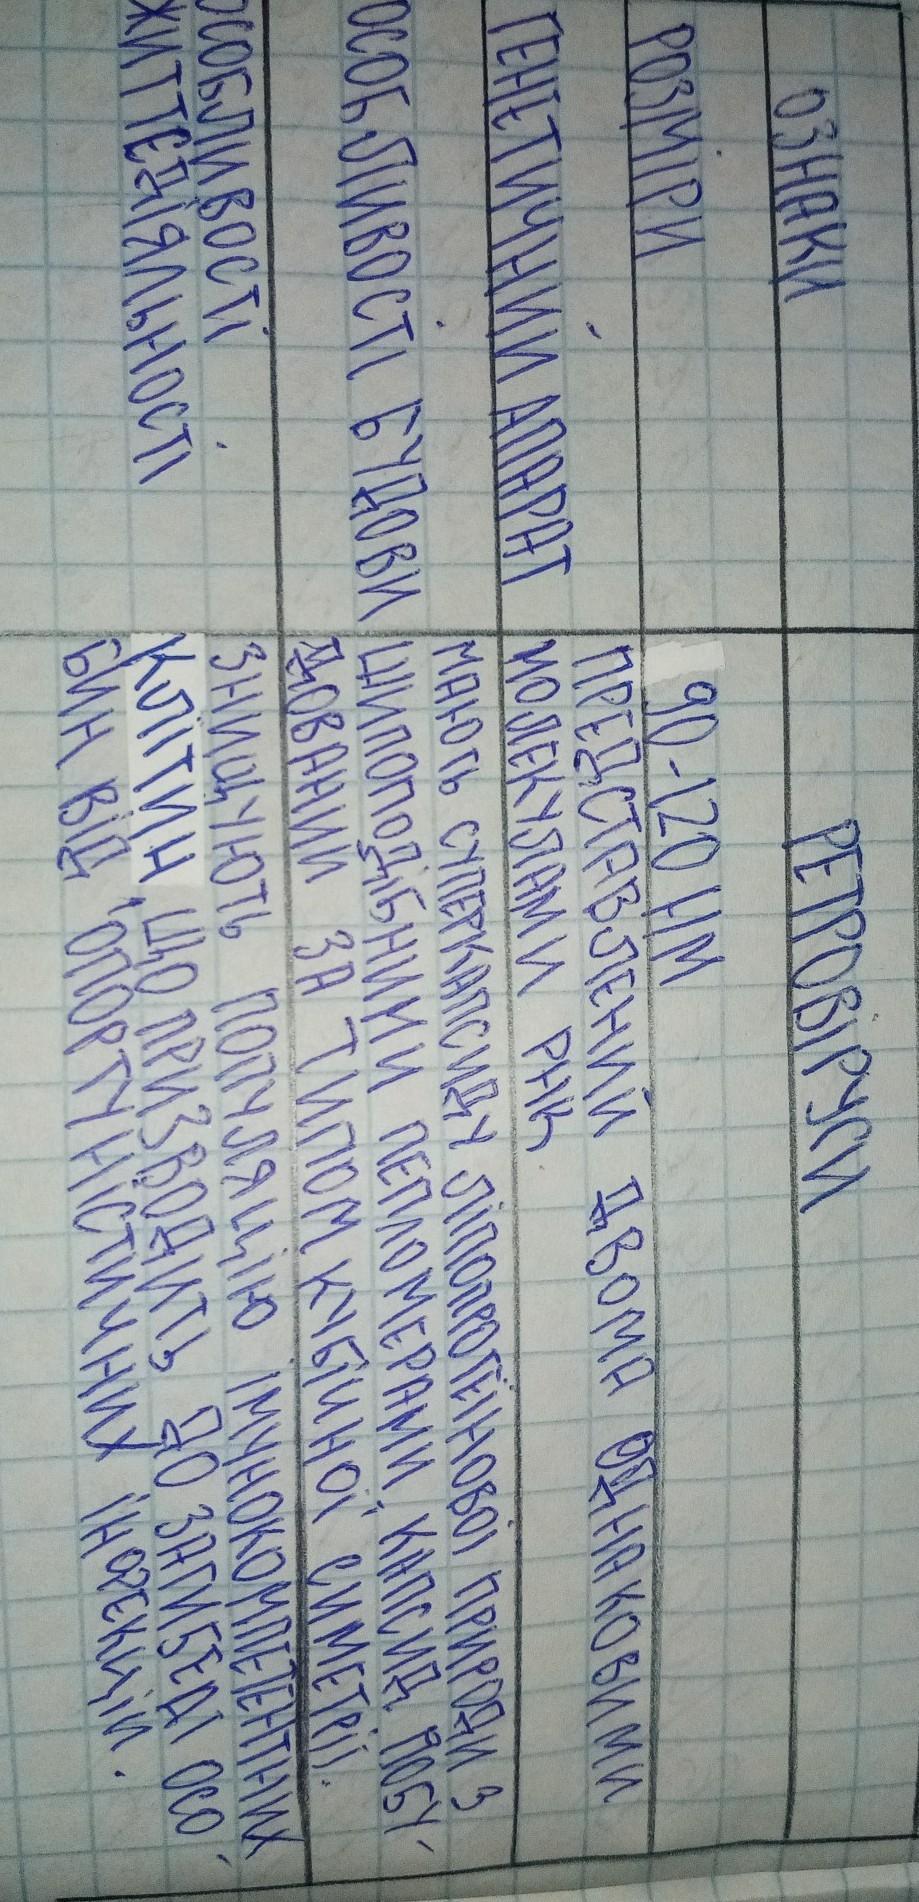 ОЗНАКИ
РЕТРОВІРУСИ
РОЗМІРИ
90-120 НМ
ГЕНЕТИЧНИЙ АПАРАТ
ПРЕДСТАВЛЕНИЙ ДВОМА ОДНАКОВИМИ
МОЛЕКУЛАМИ РНК
ОСОБЛИВОСТІ БУДОВИ
МАЮТЬ СУПЕРКАПСИДУ ЛІПОПРОТЕЇНОВОЇ ПРИРОДИ З
ШИПОПОДІБНИМИ ПЕПЛОМЕРАМИ, КАПСИД ПОБУ-
ДОВАНИЙ ЗА ТИПОМ КУБІЧНОЇ СИМЕТРІЇ.
ОСОБЛИВОСТІ
ЖИТТЄДІЯЛЬНОСТІ
ЗНИЩУЮТЬ ПОПУЛЯЦІЮ ІМУНОКОМПЕТЕНТНИХ
КЛІТИН, ЩО ПРИЗВОДИТЬ ДО ЗАГИБЕЛІ ОСО-
БИН ВІД ОПОРТУНІСТИЧНИХ ІНФЕКЦІЙ.